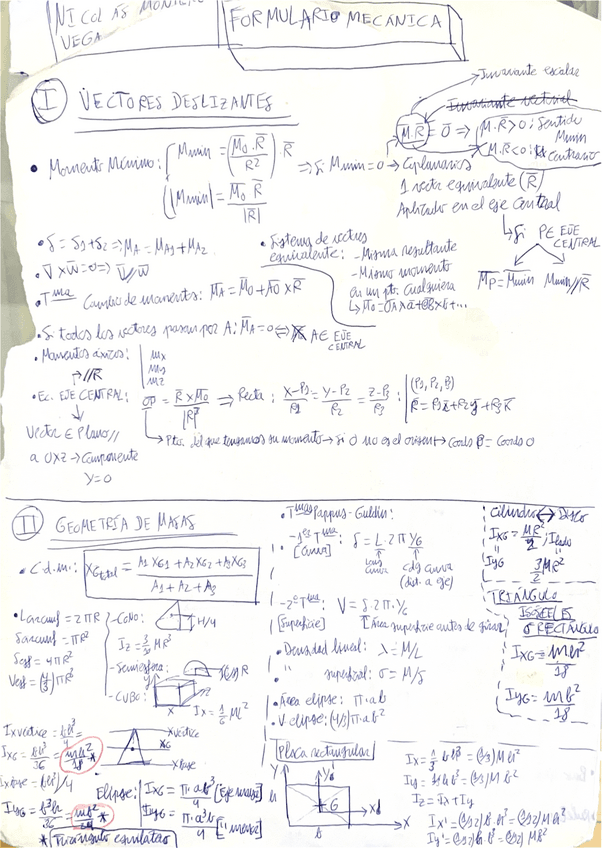 NICOLÁS MONTERO
VEGA
FORMULARIO MECÁNICA
I VECTORES DESLIZANTES
Invariante escalar
M·R̅ = 0̅ ⇒ M·R>0: Sentido Mmin
M·R<0: Contrario
• Momento Mínimo: Mmin = (M̅o·R̅ / R²) R̅ ⇒ Si Mmin=0 → Coplanarios
|Mmin| = M̅o·R̅ / |R̅|
1 vector equivalente (R̅)
Aplicado en el eje central
↳ Si P∈ EJE CENTRAL
M̅p = M̅min Mmin // R̅
• S = S1+S2 ⇒ MA = MA1 + MA2
• V̅ x W̅ = 0 ⇒ V̅//W̅
• Tma Cambio de momentos: M̅A = M̅o + A̅O̅ x R̅
• Sistemas de vectores
equivalente: - Misma resultante
- Mismo momento
en un pto. cualquiera
• Si todos los vectores pasan por A: M̅A = 0 ⇔ A∈ EJE CENTRAL
• Momentos áxicos: Mx
My
Mz
→ //R̅
• Ec. EJE CENTRAL: O̅P̅ = R̅ x M̅o / |R̅|² ⇒ Recta:
Vector ∈ Plano //
a OXZ → Componente
Y=0
Pto. del que tengamos su momento → Si O no es el origen →
II GEOMETRÍA DE MASAS
• C.d.m: XG total = A1 XG1 + A2 XG2 + A3 XG3 / A1 + A2 + A3
• Lcircunf = 2πR
Scircunf = πR²
Sesf = 4πR²
Vesf = (4/3)πR³
- CONO: H/4
Iz = 3/10 MR²
- Semiesfera: (3/8) R
- CUBO:
• Tmas Pappus-Guldin:
- 1er Tma: S = L·2π YG
[Curva] Long curva cdg curva
(dist. a eje)
- 2º Tma: V = S·2π·YG
[Superficie] [Área superficie antes de girar]
• Densidad lineal: λ = M/L
• " superficial: σ = M/S
• Área elipse: π·ab
• V elipse: (4/3)π·ab²
Cilindro ↔ Disco
IXG = MR²/2
IYG 3/2 MR²
TRIÁNGULO
ISÓSCELES
o RECTÁNGULO
IXG = mh²/18
IYG = mb²/18
IXvértice = bh³/4
IXG = bh³/36 = mh²/18 *
IXbase =
IYG = b³h/36 = mb²/24 *
* Triángulo equilátero
X vértice
XG
X base
Elipse: IXG = π·ab³/4 [Eje mayor]
IYG = π·a³b/4 [" menor]
Placa rectangular
Y Y' G X' X h b
Ix = 1/3 b h³ = (1/3) M h²
Iy = 1/3 h b³ = (1/3) M b²
Iz = Ix + Iy
Ix' = (1/12) b·h³ = (1/12) M h²
Iy' = (1/12) h·b³ = (1/12) M b²